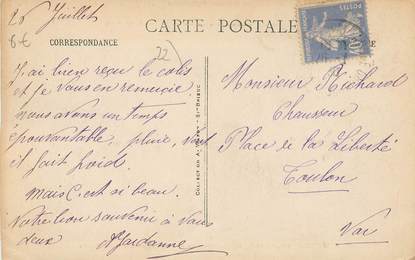 26 Juillet
8€
CARTE POSTALE
CORRESPONDANCE
22
J'ai bien reçu le colis
et je vous en remercie
nous avons un temps
épouvantable, pluie, vent
il fait froid.
Mais c'est si beau.
Votre bon souvenir à vous
deux
Monsieur Richard
Chausseur
Place de la Liberté
Toulon
Var
POSTES